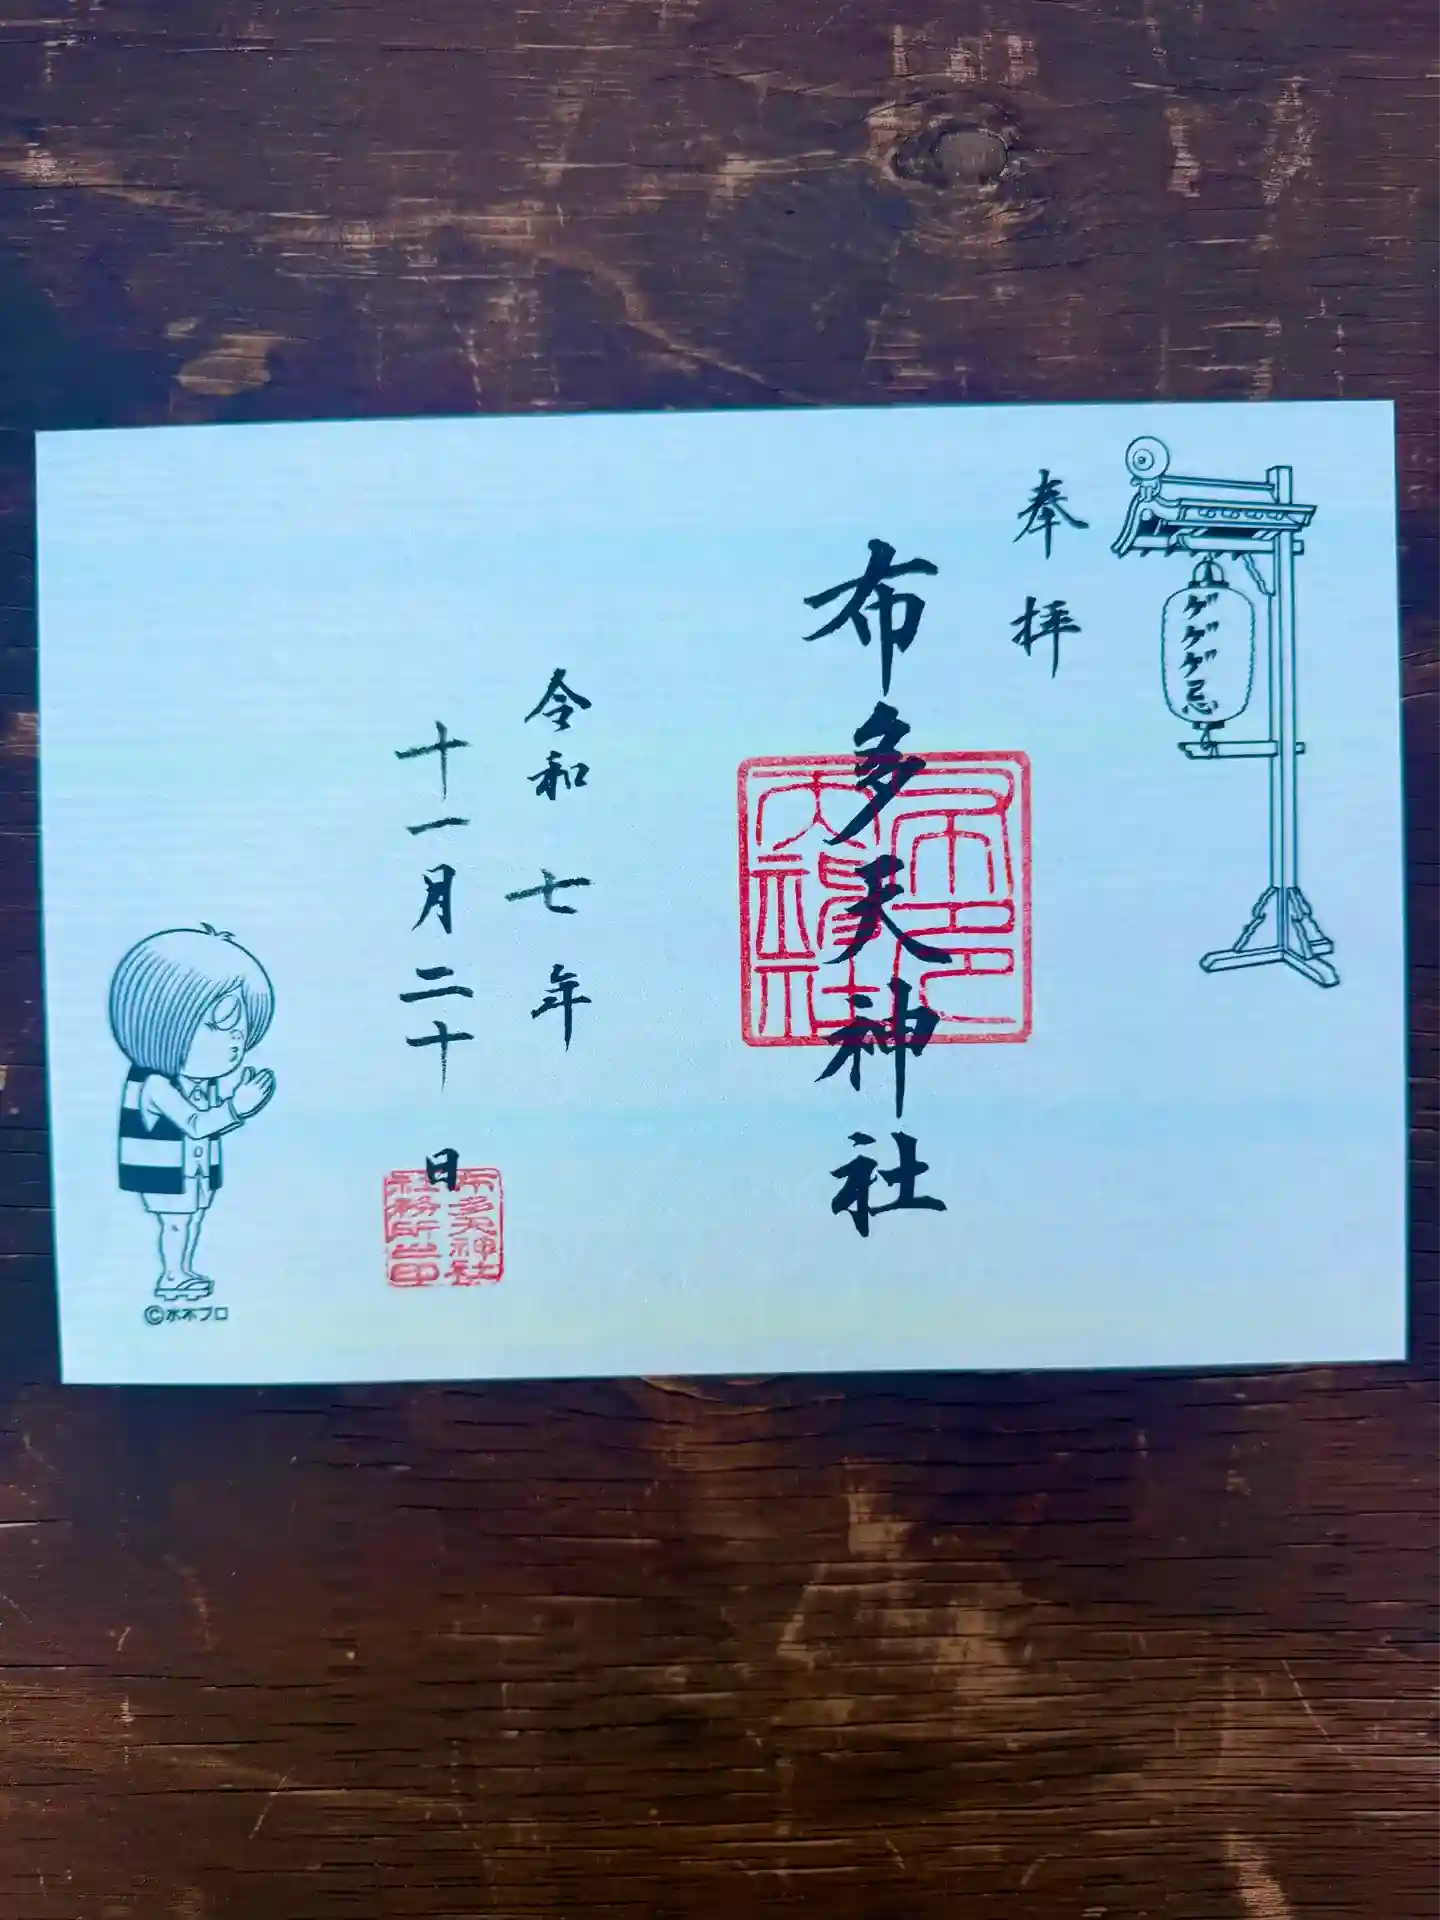 ゲゲゲ忌
奉拝
布多天神社
令和七年
十一月二十日
布多天神社
社務所之印
©水木プロ